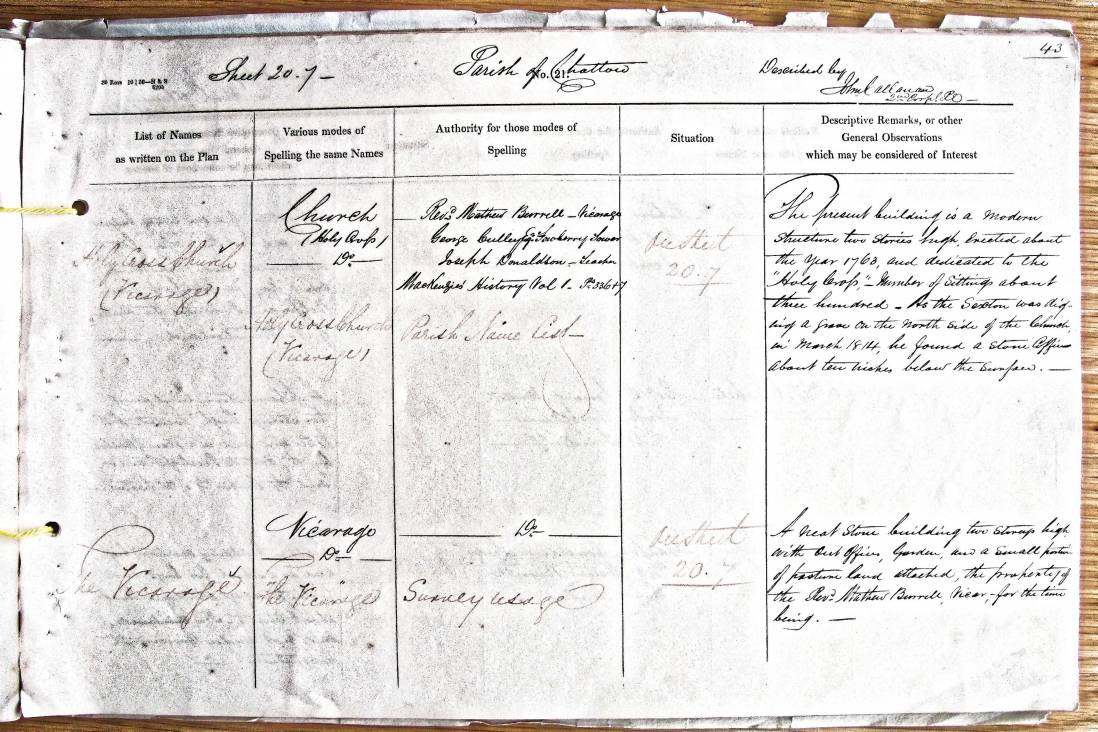 43
Sheet 20.7
Parish of Chatton
No. (21.)
Described by
John Callanan
2nd Corpl. RE
List of Names
as written on the Plan
Various modes of
Spelling the same Names
Authority for those modes of
Spelling
Situation
Descriptive Remarks, or other
General Observations
which may be considered of Interest
Holy Cross Church
(Vicarage)
Church
(Holy Cross)
Do.
Holy Cross Church
(Vicarage)
Revd. Mathew Burrell - Vicarage
George Culley Esqr. Fowberry Tower
Joseph Donaldson - Teacher
MacKenzie's History Vol 1. P. 336+7
Parish Name List
On Sheet
20.7
The present building is a modern
structure two stories high, Erected about
the Year 1763, and dedicated to the
"Holy Cross". - Number of Sittings about
three hundred - As the Sexton was dig-
ing a grave on the North side of the Church,
in March 1814, he found a Stone Coffin
about ten inches below the Surface. -
The Vicarage
Vicarage
Do.
"The Vicarage"
Do.
Survey usage
On Sheet
20.7
A Neat Stone building two Storeys high
with Out Offices, Garden, and a Small portion
of pasture land attached, the property of
the Revd. Mathew Burrell, Vicar, - for the time
being. -